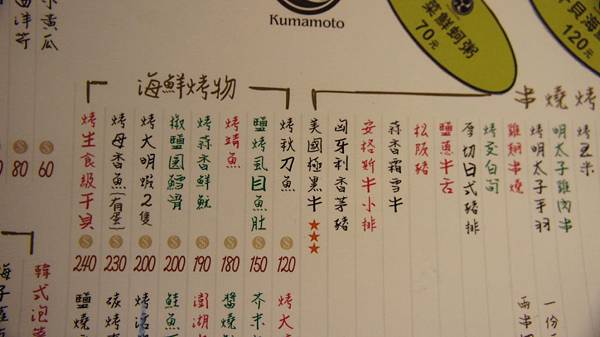 Kumamoto
菜鮮蚵粥
70元
貝海鮮
120元
串燒烤
烤玉米
明太子雞肉串
烤明太子手羽
雞翅串燒
烤茭白筍
厚切日式豬排
牛舌
松阪豬
蒜香霜雪牛
安格斯牛小排
匈牙利香茅豬
美國極黑牛★★★
海鮮烤物
烤秋刀魚 $ 120
鹽烤虱目魚肚 $ 150
烤鯖魚 $ 180
烤蒜香鮮魷 $ 190
椒鹽圓鱈骨 $ 200
烤大明蝦2隻 $ 200
烤母香魚(有蛋) $ 230
烤生食級干貝 $ 240
黃瓜 $ 60
洋芋 $ 80
一份
兩串
烤大
芥末
醬燒
澎湖
鮭魚
碳烤
鹽燒
韓式泡菜